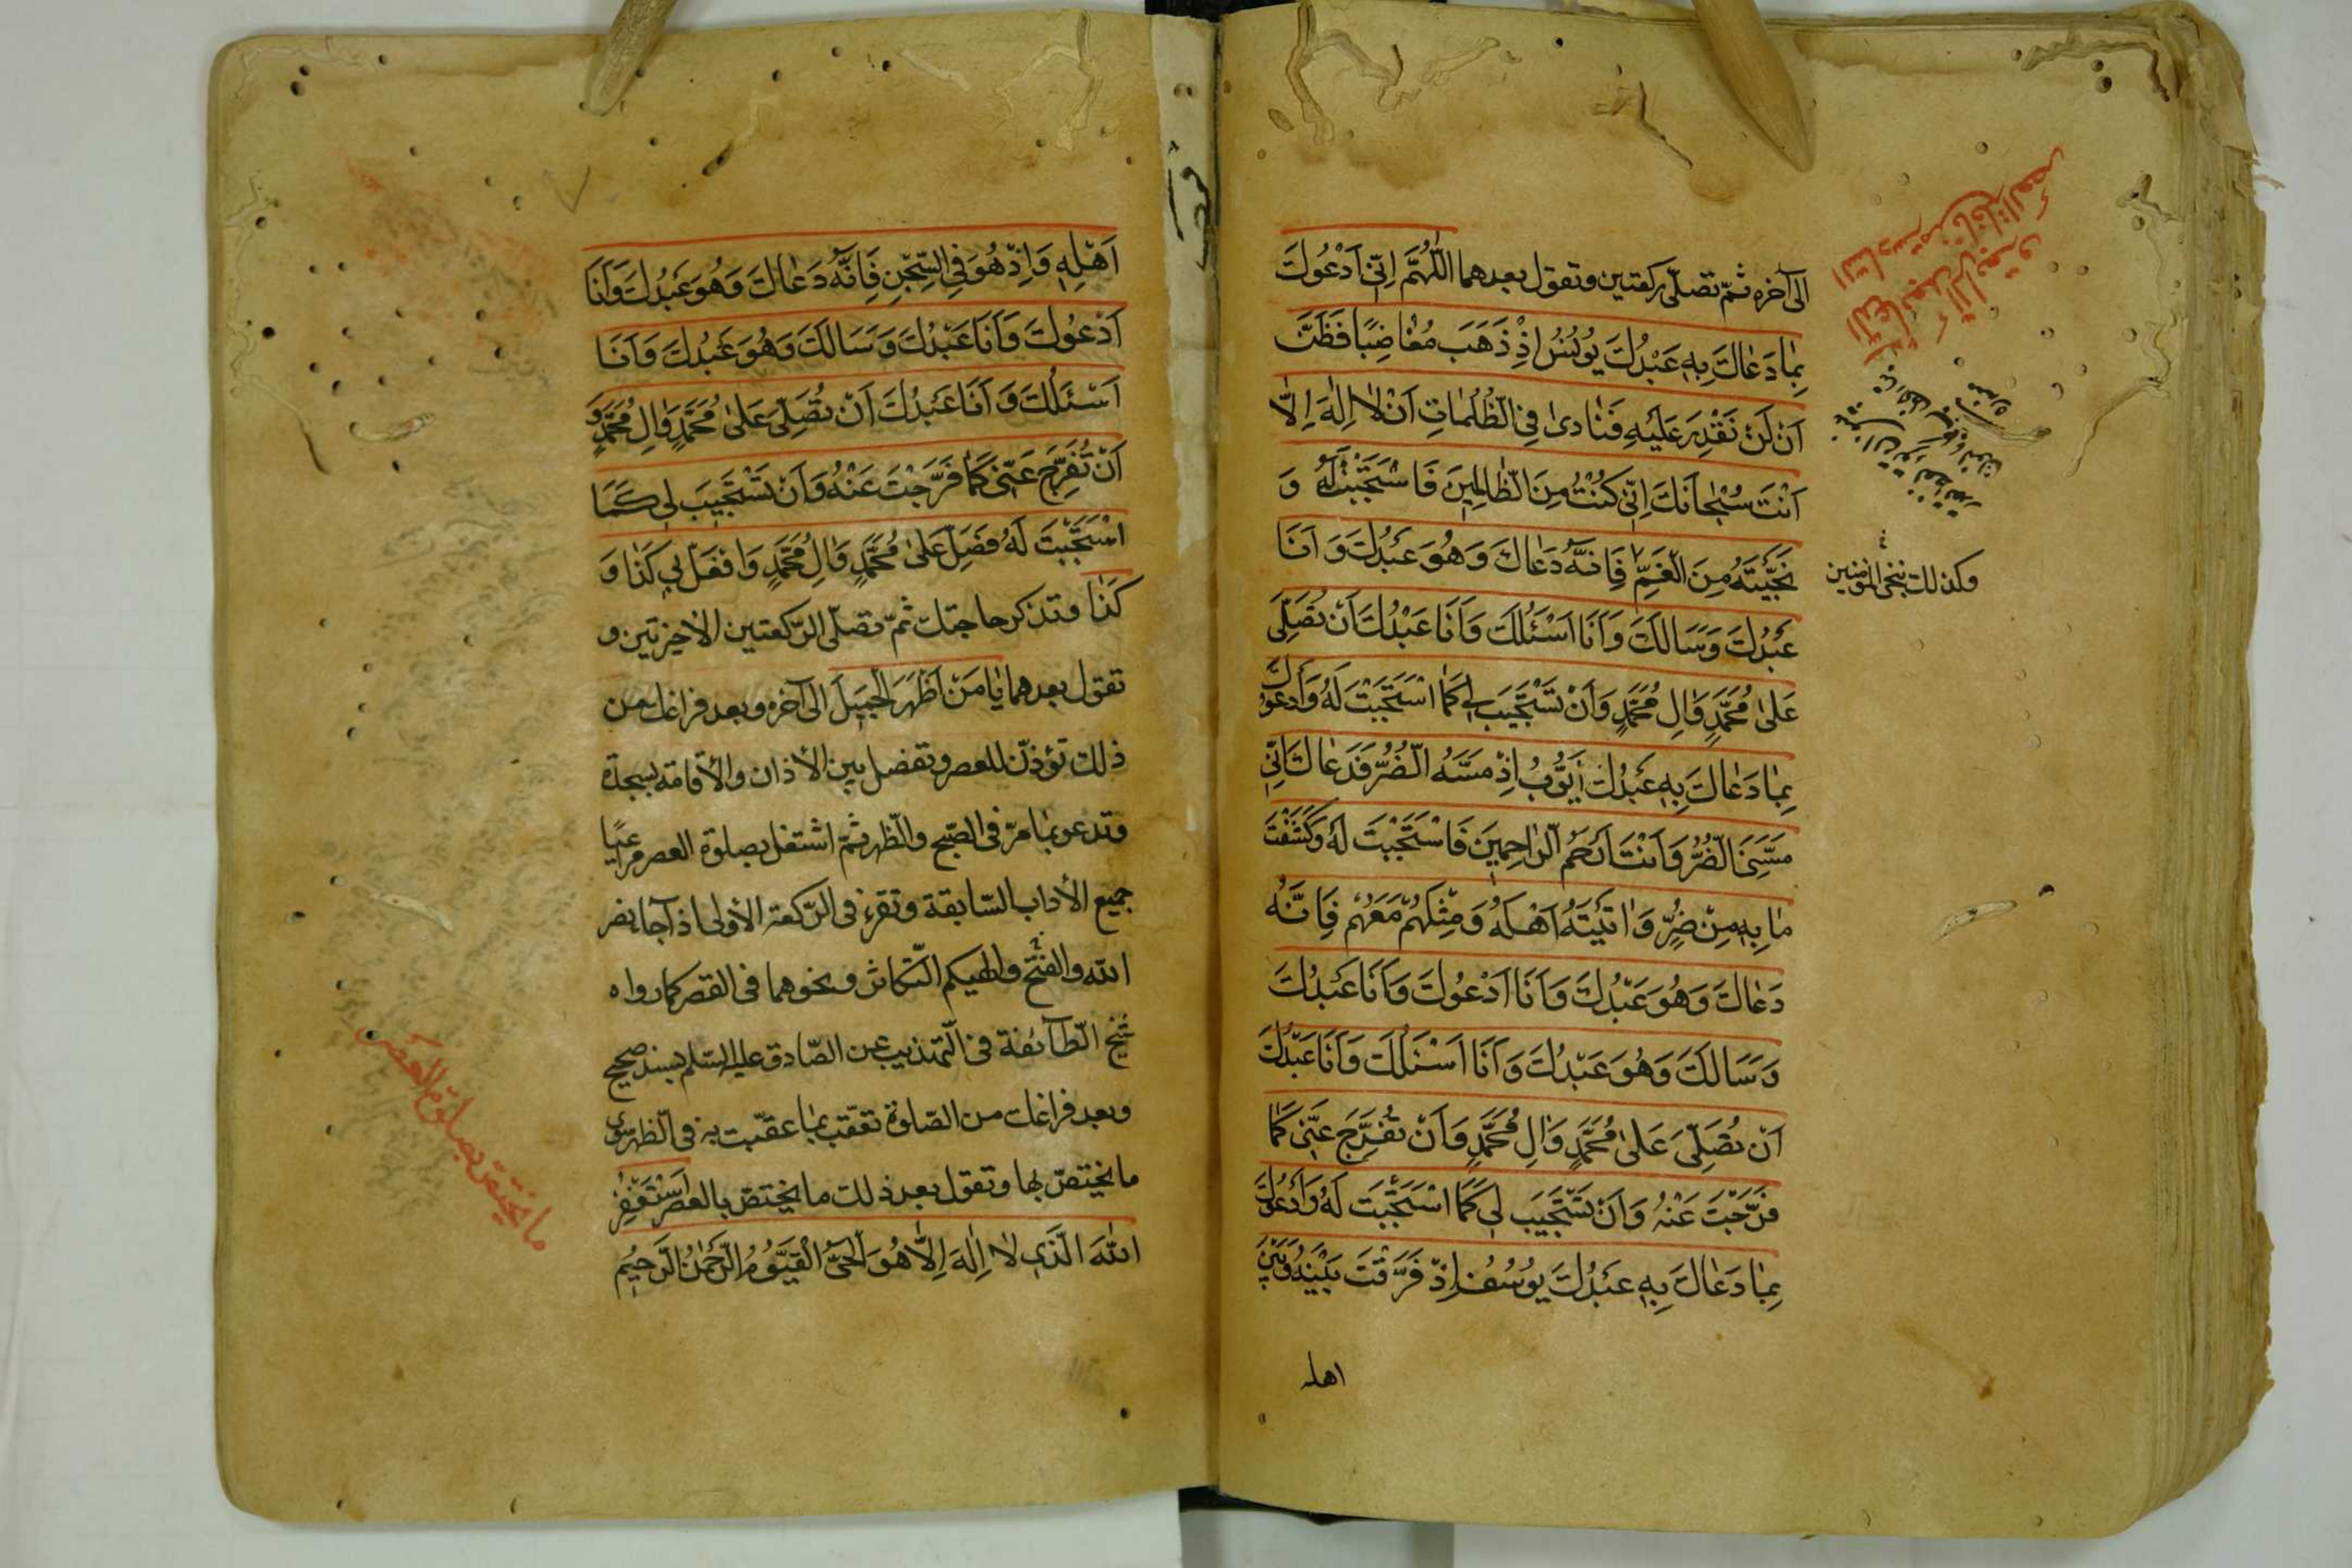 الى آخره ثمّ تصلّى ركعتين وتقول بعدهما اَللّٰهُمَّ اِنّى اَدْعُوكَ
بِمٰا دَعٰاكَ بِهٖ عَبْدُكَ يُونُسُ اِذْ ذَهَبَ مُغٰاضِبًا فَظَنَّ
اَنْ لَنْ نَقْدِرَ عَلَيْهِ فَنٰادىٰ فِى الظُّلُمٰاتِ اَنْ لٰا اِلٰهَ اِلّٰا
اَنْتَ سُبْحٰانَكَ اِنّى كُنْتُ مِنَ الظّٰالِمينَ فَاسْتَجَبْتَ لَهُ وَ
نَجَّيْتَهُ مِنَ الْغَمِّ فَاِنَّهُ دَعٰاكَ وَهُوَ عَبْدُكَ وَ اَنَا
عَبْدُكَ وَسَالَكَ وَاَنَا اَسْئَلُكَ وَاَنَا عَبْدُكَ اَنْ تُصَلِّىَ
عَلىٰ مُحَمَّدٍ وَاٰلِ مُحَمَّدٍ وَاَنْ تَسْتَجيبَ لى كَمَا اسْتَجَبْتَ لَهُ وَاَدْعُوكَ
بِمٰا دَعٰاكَ بِهٖ عَبْدُكَ اَيُّوبُ اِذْ مَسَّهُ الضُّرُّ فَدَعٰاكَ اَنّى
مَسَّنِىَ الضُّرُّ وَاَنْتَ اَرْحَمُ الرّٰاحِمينَ فَاسْتَجَبْتَ لَهُ وَكَشَفْتَ
مٰا بِهٖ مِنْ ضُرٍّ وَاٰتَيْتَهُ اَهْلَهُ وَمِثْلَهُمْ مَعَهُمْ فَاِنَّهُ
دَعٰاكَ وَهُوَ عَبْدُكَ وَاَنَا اَدْعُوكَ وَاَنَا عَبْدُكَ
وَسَالَكَ وَهُوَ عَبْدُكَ وَاَنَا اَسْئَلُكَ وَاَنَا عَبْدُكَ
اَنْ تُصَلِّىَ عَلىٰ مُحَمَّدٍ وَاٰلِ مُحَمَّدٍ وَاَنْ تُفَرِّجَ عَنّى كَمٰا
فَرَّجْتَ عَنْهُ وَاَنْ تَسْتَجيبَ لى كَمَا اسْتَجَبْتَ لَهُ وَاَدْعُوكَ
بِمٰا دَعٰاكَ بِهٖ عَبْدُكَ يُوسُفُ اِذْ فَرَّقْتَ بَيْنَهُ وَبَيْنَ
اهله
وكذلك ننجى المؤمنين
اَهْلِهٖ وَاِذْ هُوَ فِى السِّجْنِ فَاِنَّهُ دَعٰاكَ وَهُوَ عَبْدُكَ وَاَنَا
اَدْعُوكَ وَاَنَا عَبْدُكَ وَسَالَكَ وَهُوَ عَبْدُكَ وَاَنَا
اَسْئَلُكَ وَاَنَا عَبْدُكَ اَنْ تُصَلِّىَ عَلىٰ مُحَمَّدٍ وَاٰلِ مُحَمَّدٍ وَ
اَنْ تُفَرِّجَ عَنّى كَمٰا فَرَّجْتَ عَنْهُ وَاَنْ تَسْتَجيبَ لى كَمَا
اسْتَجَبْتَ لَهُ فَصَلِّ عَلىٰ مُحَمَّدٍ وَاٰلِ مُحَمَّدٍ وَافْعَلْ بى كَذٰا وَ
كَذٰا وتذكر حاجتك ثمّ تصلّى الرّكعتين الأخيرتين و
تقول بعدهما يٰا مَنْ اَظْهَرَ الْجَميلَ الى آخره وبعد فراغك من
ذلك تؤذّن للعصر وتفصل بين الأذان والأقامة بسجدة
وتدعو بما مرّ فى الصّبح والظّهر ثمّ اشتغل بصلوة العصر مراعيًا
جميع الأداب السّابقة وتقرء فى الرّكعة الأولى اذا جاء نصر
الله والفتح والهيكم التّكاثر ونحوهما فى القصر كما رواه
شيخ الطّائفة فى التّهذيب عن الصّادق عليه السّلم بسند صحيح
وبعد فراغك من الصّلوة تعقّب بما عقّبت به فى الظّهر سوى
ما يختصّ بها وتقول بعد ذلك ما يختصّ بالعصر اَسْتَغْفِرُ
اللّٰهَ الَّذى لٰا اِلٰهَ اِلّٰا هُوَ الْحَىُّ الْقَيُّومُ الرَّحْمٰنُ الرَّحيمُ
ما يختصّ بصلوة العصر